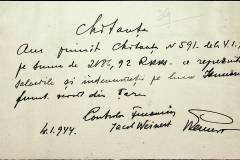 Chitanța
Am primit chitanța N 591. de la 4.1.
pe suma de 2186,92 RKM. ce reprezintă
salariile și indemnizații pe luna Ianuarie
funct. vechi din Țara
Controlor Financiar
4.1.944. Iacob Weinert